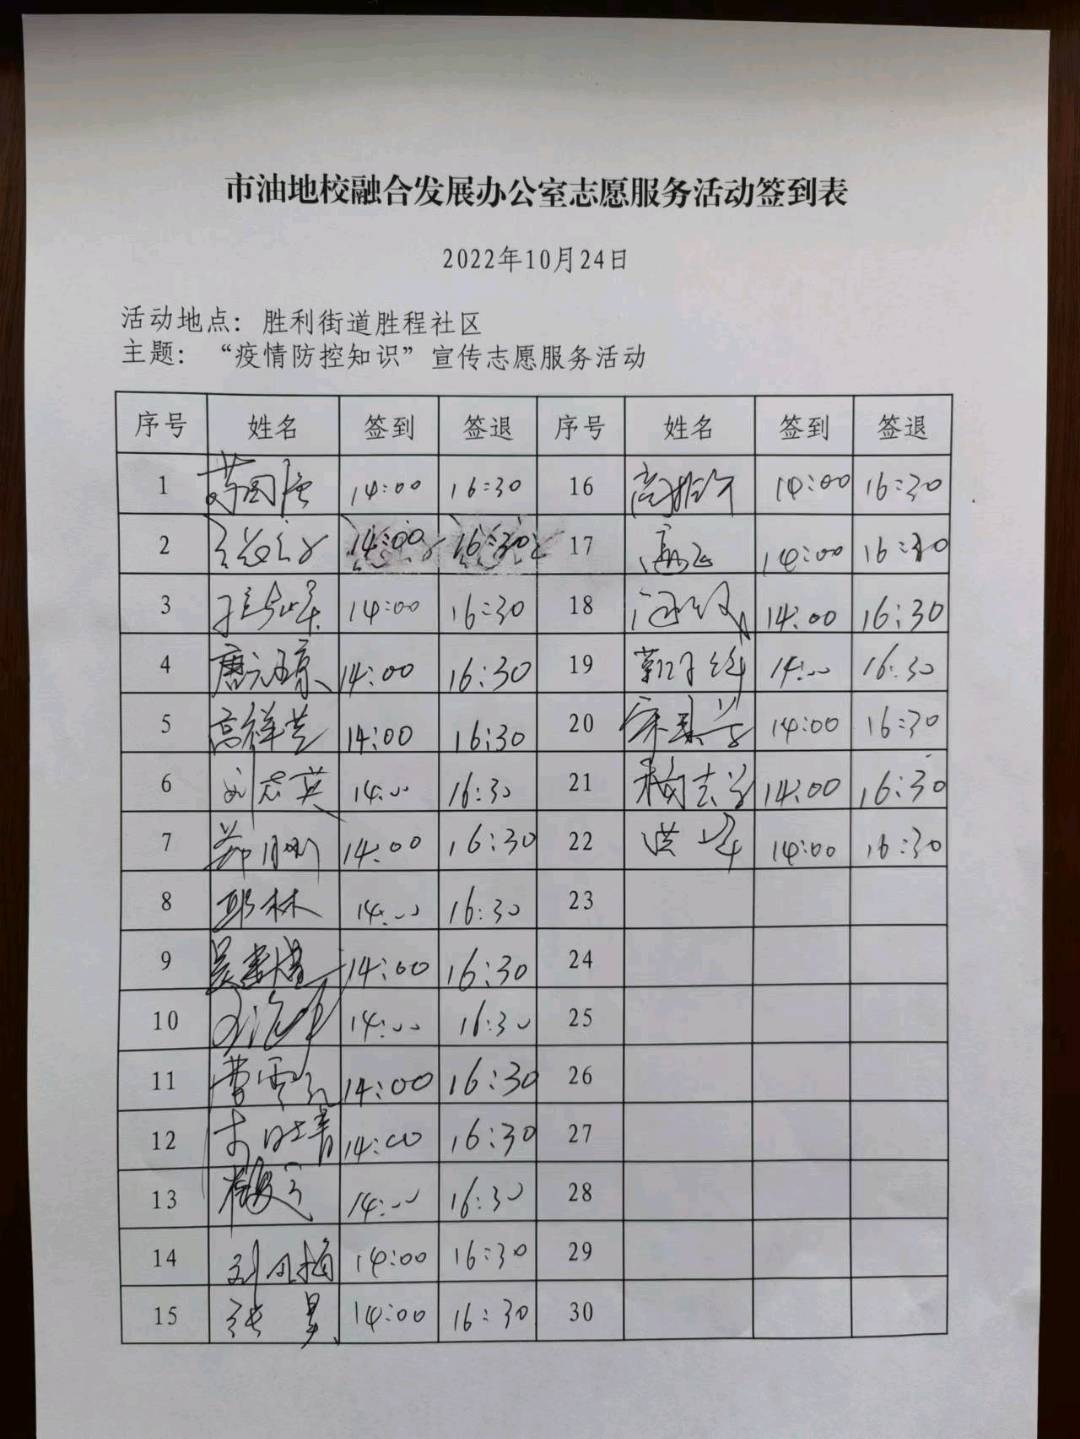 市油地校融合发展办公室志愿服务活动签到表
2022年10月24日
活动地点：胜利街道胜程社区
主题：“疫情防控知识”宣传志愿服务活动
序号 姓名 签到 签退 序号 姓名 签到 签退
1 14:00 16:30 16 14:00 16:30
2 14:00 16:30 17 14:00 16:30
3 14:00 16:30 18 14:00 16:30
4 14:00 16:30 19 14:00 16:30
5 高祥芝 14:00 16:30 20 14:00 16:30
6 刘志英 14:00 16:30 21 14:00 16:30
7 14:00 16:30 22 洪峰 14:00 16:30
8 邱林 14:00 16:30 23
9 14:00 16:30 24
10 14:00 16:30 25
11 14:00 16:30 26
12 14:00 16:30 27
13 14:00 16:30 28
14 14:00 16:30 29
15 张昊 14:00 16:30 30